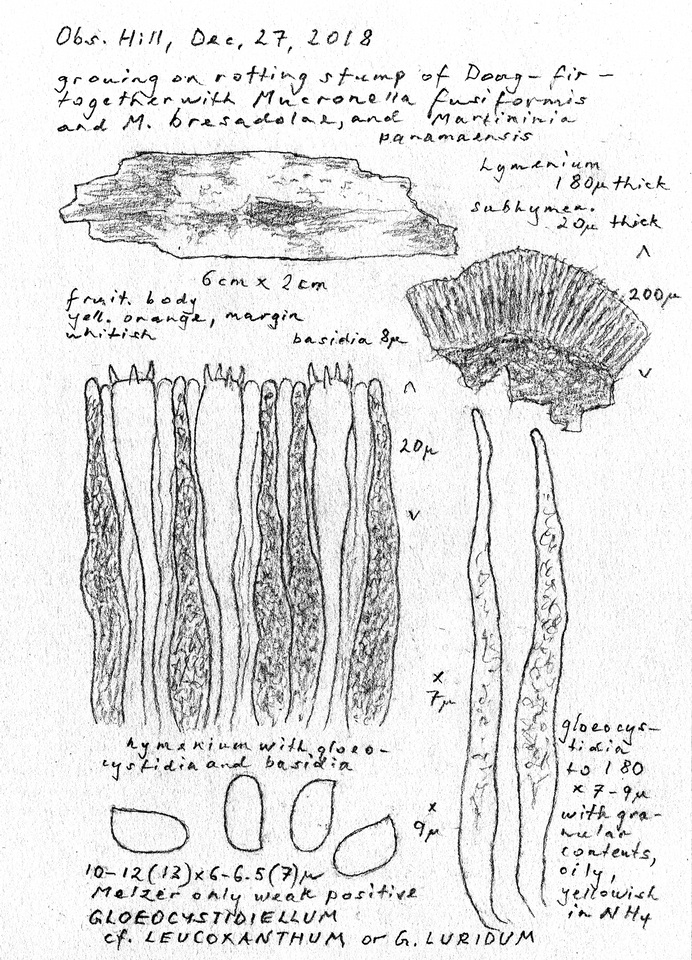 Obs. Hill, Dec, 27, 2018
growing on rotting stump of Doug-fir -
together with Mucronella fusiformis
and M. bresadolae, and Martininia
panamaensis
hymenium
180µ thick
subhymen.
20µ thick
200µ
6cm x 2cm
fruit. body
yell. orange, margin
whitish
basidia 8µ
20µ
x
7µ
hymenium with gloeo-
cystidia and basidia
x
9µ
gloeocys-
tidia
to 180
x 7-9µ
with gra-
nular
contents,
oily,
yellowish
in NH4
10-12(13)x6-6.5(7)µ
Melzer only weak positive
GLOEOCYSTIDIELLUM
cf. LEUCOXANTHUM or G. LURIDUM